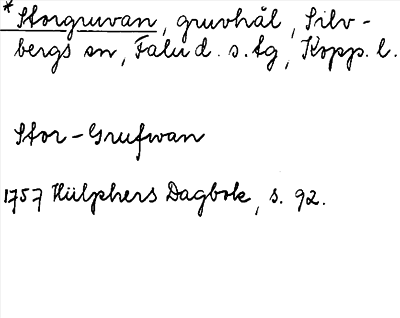 * Storgruvan, gruvhål, Silv-
bergs sn, Falu d. s. tg, Kopp. l.
Stor-Grufwan
1757 Hülphers Dagbok, s. 92.